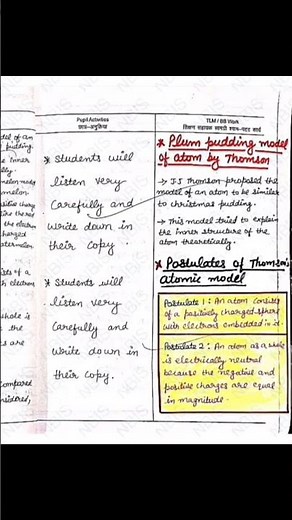 Pupil Activities
छात्र-अनुक्रिया
TLM / BB Work
शिक्षण सहायक सामग्री श्याम-पट्ट कार्य
del of an
pudding.
e inner
lly.
melon model
melon.
ositive charge
like the red
the electron
charged
atermelon
ists of a
th electrons
whole is
the
s are
compared
nsidered,
* Students will
listen very
Carefully and
Write down in
their Copy.
* Students will
listen very
Carefully and
Write down in
their Copy.
* Plum pudding model
of atom by Thomson
→ J.J Thomson proposed the
model of an atom to be similar
to christmas pudding.
→ This model tried to explain
the inner structure of the
atom theoretically.
* Postulates of Thomson's
atomic model
Postulate 1 : An atom consists
of a positively charged sphere
with electrons embedded in it.
Postulate 2 : An atom as a whole
is electrically neutral
because the negative and
positive charges are equal
in magnitude.